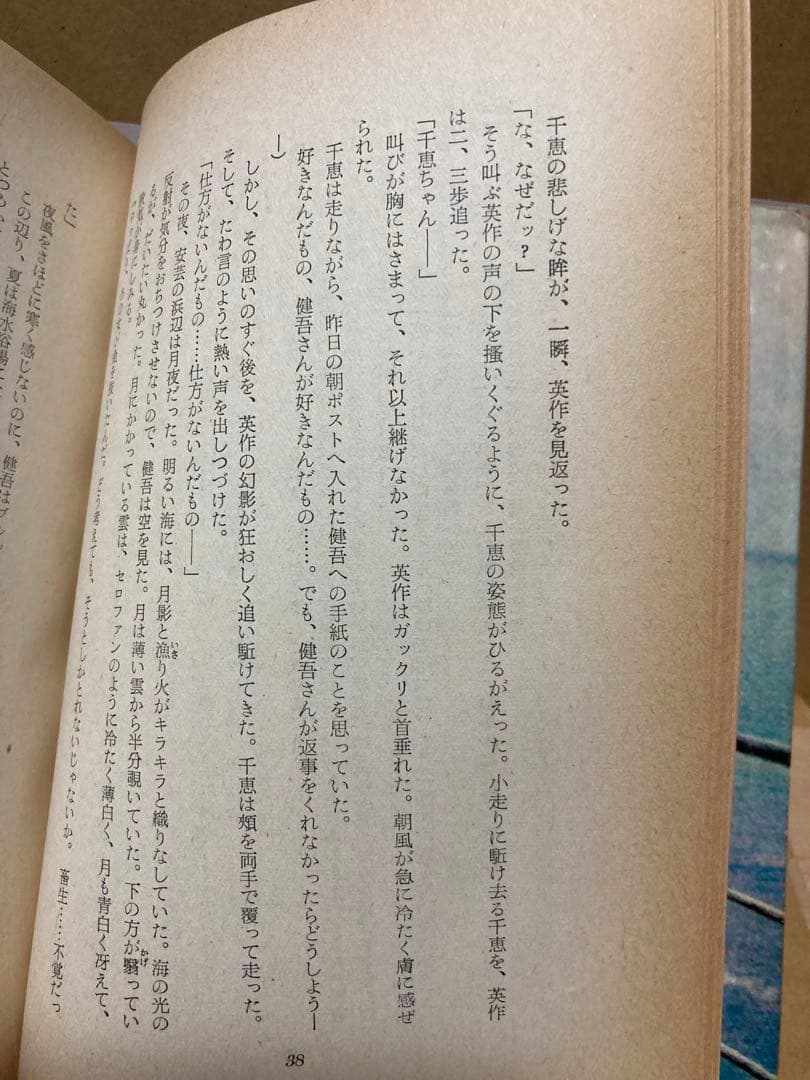 千恵の悲しげな眸が、一瞬、英作を見返った。
「な、なぜだッ？」
そう叫ぶ英作の声の下を掻いくぐるように、千恵の姿態がひるがえった。小走りに駈け去る千恵を、英作
は二、三歩追った。
「千恵ちゃん――」
叫びが胸にはさまって、それ以上継げなかった。英作はガックリと首垂れた。朝風が急に冷たく膚に感ぜ
られた。
千恵は走りながら、昨日の朝ポストへ入れた健吾への手紙のことを思っていた。
好きなんだもの、健吾さんが好きなんだもの……。でも、健吾さんが返事をくれなかったらどうしよう―
―）
しかし、その思いのすぐ後を、英作の幻影が狂おしく追い駈けてきた。千恵は頰を両手で覆って走った。
そして、たわ言のように熱い声を出しつづけた。
「仕方がないんだもの……仕方がないんだもの――」
その夜、安芸の浜辺は月夜だった。明るい海には、月影と漁り火がキラキラと織りなしていた。海の光の
いさ
反射が気分をおちつけさせないので、健吾は空を見た。月は薄い雲から半分覗いていた。下の方が翳ってい
かげ
るが、だいたい丸かった。月にかかっている雲は、セロファンのように冷たく薄白く、月も青白く冴えて、
どう考えても、そうとしかとれないじゃないか。畜生……不覚だっ
た」
夜風をさほどに寒く感じないのに、健吾はブル
この辺り、夏は海水浴場
38